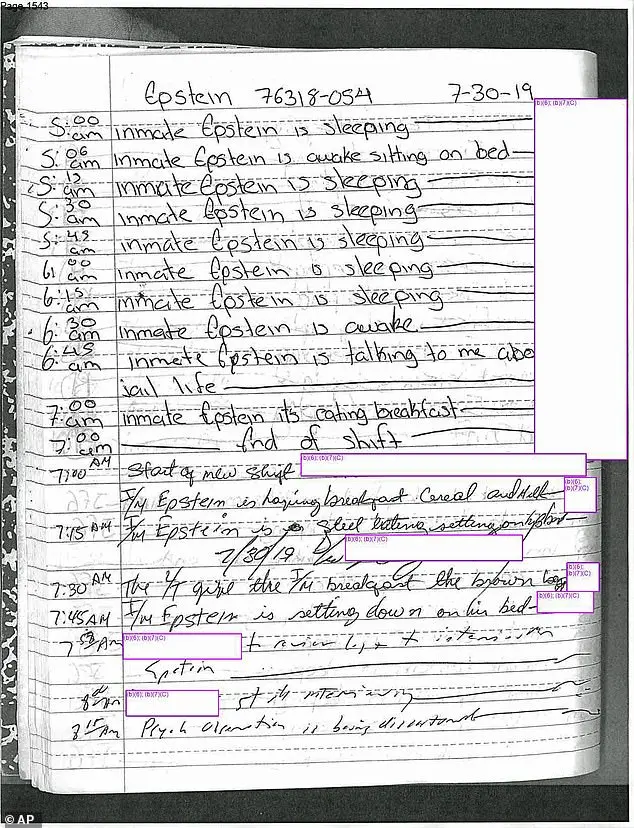 Page 1543
Epstein 76318-054 7-30-19
(b)(6); (b)(7)(C)
5:00 am inmate Epstein is sleeping
5:06 am Inmate Epstein is awake sitting on bed
5:15 am inmate Epstein is sleeping
5:30 am inmate Epstein is sleeping
5:45 am inmate Epstein is sleeping
6:00 am inmate Epstein is sleeping
6:15 am inmate Epstein is sleeping
6:30 am inmate Epstein is awake
6:45 am inmate Epstein is talking to me abo
jail life
7:00 am inmate Epstein its eating breakfast
7:00 am End of shift
7:00 AM Start of new shift (b)(6); (b)(7)(C)
I/M Epstein is having breakfast Cereal and (b)(6); (b)(7)(C)
7:15 AM I/M Epstein is still eating, setting on
7/30/19 (b)(6); (b)(7)(C)
7:30 AM The give the I/M breakfast the brown bag (b)(6); (b)(7)(C)
7:45 AM I/M Epstein is setting down on his bed (b)(6); (b)(7)(C)
AM (b)(6); (b)(7)(C) to review log +
Epstein
AM (b)(6); (b)(7)(C) still interviewing
8:15 AM Psych Observation is being
© AP